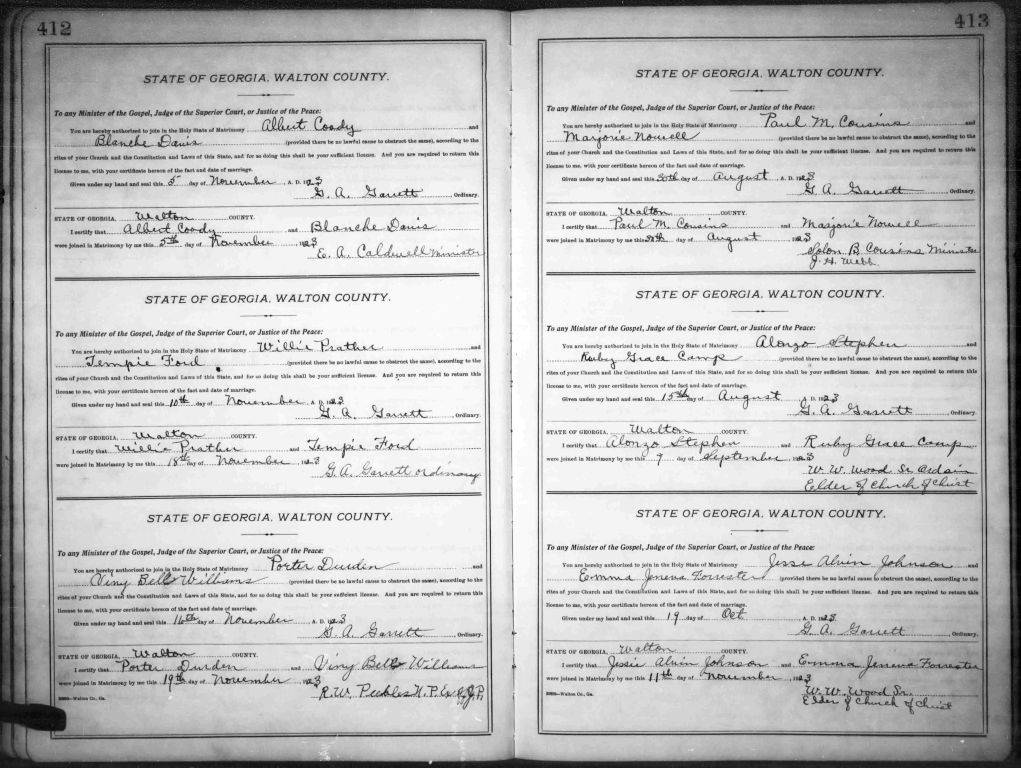 412
STATE OF GEORGIA, WALTON COUNTY.
To any Minister of the Gospel, Judge of the Superior Court, or Justice of the Peace:
You are hereby authorized to join in the Holy State of Matrimony Albert Coody and
Blanche Davis (provided there be no lawful cause to obstruct the same), according to the
rites of your Church and the Constitution and Laws of this State, and for so doing this shall be your sufficient license. And you are required to return this
license to me, with your certificate hereon of the fact and date of marriage.
Given under my hand and seal this 5 day of November, A. D. 1923
G. A. Garrett Ordinary.
STATE OF GEORGIA, Walton COUNTY.
I certify that Albert Coody and Blanche Davis
were joined in Matrimony by me this 5th day of November 1923
E. A. Caldwell Minister
STATE OF GEORGIA, WALTON COUNTY.
To any Minister of the Gospel, Judge of the Superior Court, or Justice of the Peace:
You are hereby authorized to join in the Holy State of Matrimony Willie Prather and
Tempie Ford (provided there be no lawful cause to obstruct the same), according to the
rites of your Church and the Constitution and Laws of this State, and for so doing this shall be your sufficient license. And you are required to return this
license to me, with your certificate hereon of the fact and date of marriage.
Given under my hand and seal this 10th day of November A. D. 1923
G. A. Garrett Ordinary.
STATE OF GEORGIA, Walton COUNTY.
I certify that Willie Prather and Tempie Ford
were joined in Matrimony by me this 18th day of November 1923
G. A. Garrett ordinary
STATE OF GEORGIA, WALTON COUNTY.
To any Minister of the Gospel, Judge of the Superior Court, or Justice of the Peace:
You are hereby authorized to join in the Holy State of Matrimony Porter Durden and
Viny Bell Williams (provided there be no lawful cause to obstruct the same), according to the
rites of your Church and the Constitution and Laws of this State, and for so doing this shall be your sufficient license. And you are required to return this
license to me, with your certificate hereon of the fact and date of marriage.
Given under my hand and seal this 16th day of November, A. D. 1923
G. A. Garrett Ordinary.
STATE OF GEORGIA, Walton COUNTY.
I certify that Porter Durden and Viny Bell Williams
were joined in Matrimony by me this 19th day of November, 1923
R. W. Peebles N. P. Ex. of. J. P.
Walton Co., Ga.
413
STATE OF GEORGIA, WALTON COUNTY.
To any Minister of the Gospel, Judge of the Superior Court, or Justice of the Peace:
You are hereby authorized to join in the Holy State of Matrimony Paul M. Cousins and
Marjorie Nowell (provided there be no lawful cause to obstruct the same), according to the
rites of your Church and the Constitution and Laws of this State, and for so doing this shall be your sufficient license. And you are required to return this
license to me, with your certificate hereon of the fact and date of marriage.
Given under my hand and seal this 30th day of August A. D. 1923
G. A. Garrett Ordinary.
STATE OF GEORGIA, Walton COUNTY.
I certify that Paul M. Cousins and Marjorie Nowell
were joined in Matrimony by me this 30th day of August 1923
Solon B. Cousins Minister
J. H. Webb
STATE OF GEORGIA, WALTON COUNTY.
To any Minister of the Gospel, Judge of the Superior Court, or Justice of the Peace:
You are hereby authorized to join in the Holy State of Matrimony Alonzo Stephen and
Ruby Grace Camp (provided there be no lawful cause to obstruct the same), according to the
rites of your Church and the Constitution and Laws of this State, and for so doing this shall be your sufficient license. And you are required to return this
license to me, with your certificate hereon of the fact and date of marriage.
Given under my hand and seal this 15th day of August A. D. 1923
G. A. Garrett Ordinary.
STATE OF GEORGIA, Walton COUNTY.
I certify that Alonzo Stephen and Ruby Grace Camp
were joined in Matrimony by me this 9 day of September 1923
W. W. Wood Sr.
Elder of Church of Christ
STATE OF GEORGIA, WALTON COUNTY.
To any Minister of the Gospel, Judge of the Superior Court, or Justice of the Peace:
You are hereby authorized to join in the Holy State of Matrimony Jesse Alvin Johnson and
Emma Jenena Forrester (provided there be no lawful cause to obstruct the same), according to the
rites of your Church and the Constitution and Laws of this State, and for so doing this shall be your sufficient license. And you are required to return this
license to me, with your certificate hereon of the fact and date of marriage.
Given under my hand and seal this 19 day of Oct A. D. 1923
G. A. Garrett Ordinary.
STATE OF GEORGIA, Walton COUNTY.
I certify that Jessie Alvin Johnson and Emma Jenena Forrester
were joined in Matrimony by me this 11th day of November 1923
W. W. Wood Sr.
Elder of Church of Christ
Walton Co., Ga.